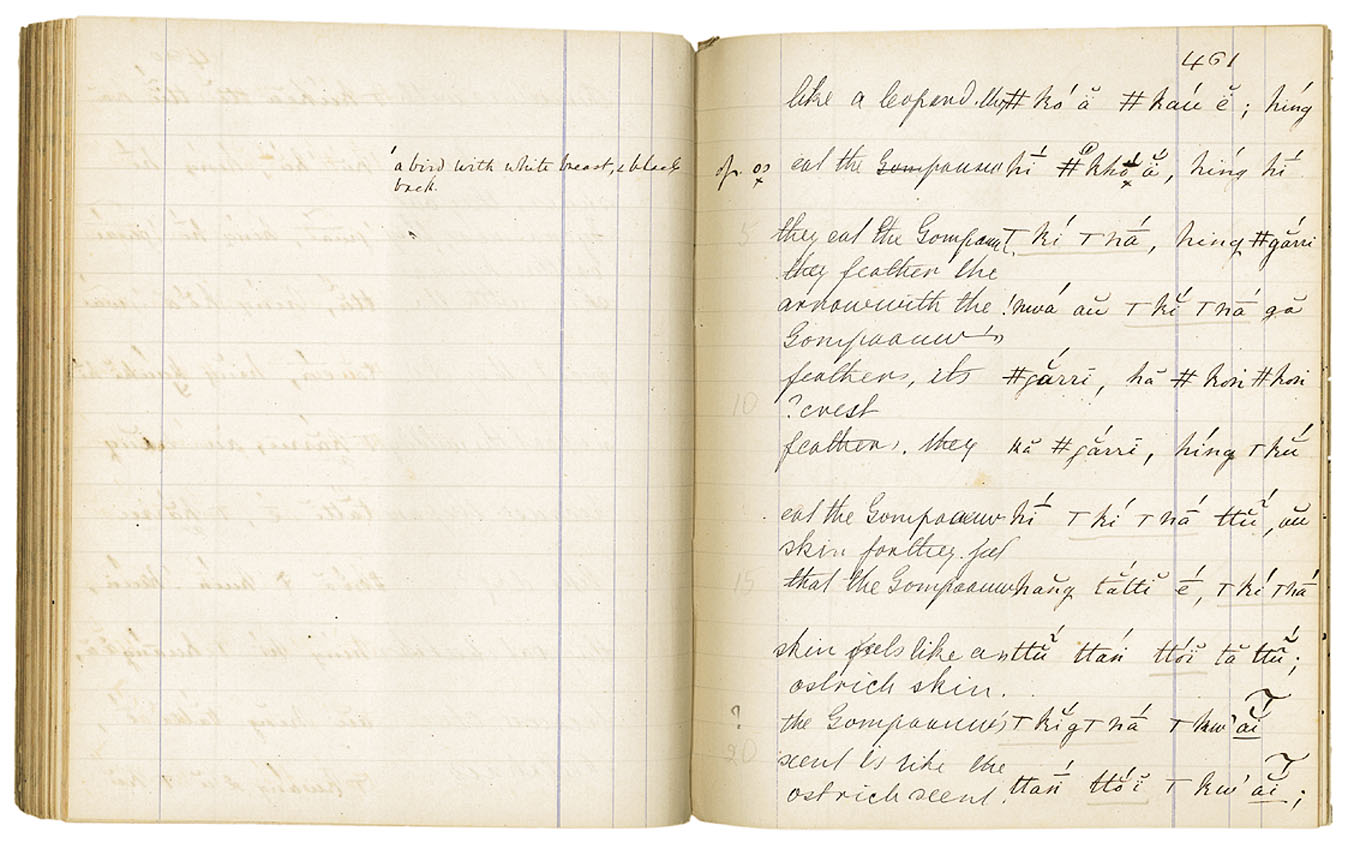 'a bird with white breast, & black
back.
461
like a leopard. they ǂkó ă ǂkaú ĕ; híng
eat the Gompaauw hí ǂkhó ă, híng hí
5 they eat the Gompaauw ⊤kí ⊤ná, hing ǂgárri
they feather the
arrow with the !nwá aŭ ⊤kí ⊤ná gă
Gompaauw's
feathers, its ǂgárri, hă ǂkori ǂkori
10 ?crest
feathers. they kă ǂgárri, híng ⊤kú
eat the Gompaauw hí ⊤kí ⊤ná ttŭ, au
skin for they feel
15 that the Gompaauw hang tátti é, ⊤kí ⊤ná
skin feels like an ttŭ ttań ttói tă ttŭ;
ostrich skin.
? the Gompaauw's ⊤kíg ⊤ná ⊤kw'ăĭ
20 scent is like the
ostrich scent. ttań ttói ⊤kw'ăĭ;